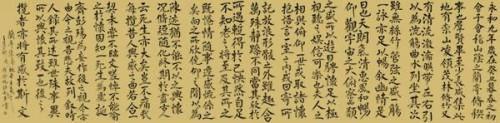 永和九年歲在癸丑暮春之初
會于會稽山陰之蘭亭脩禊
事也群賢畢至少長咸集此
地有崇山峻領茂林脩竹又
有清流激湍映帶左右引
以為流觴曲水列坐其次
雖無絲竹管弦之盛一觴
一詠亦足以暢敘幽情是
日也天朗氣清惠風和暢
仰觀宇宙之大俯察品類
之盛所以遊目騁懷足以極
視聽之娛信可樂也夫人之
相與俯仰一世或取諸懷
抱悟言一室之內或因寄所
託放浪形骸之外雖趣舍
萬殊靜躁不同當其欣於
所遇暫得於己快然自足
不知老之將至及其所之
既惓情隨事遷感慨係之
矣向之所欣俛仰之間以為
陳迹猶不能不以之興懷
況脩短隨化終期於盡古人
云死生亦大矣豈不痛哉
每攬昔人興感之由若合一
契未嘗不臨文嗟悼不能喻
之於懷固知一死生為虛誕
齊彭殤為妄作後之視今亦
由今之視昔悲夫故列敘時
人錄其所述雖世殊事異
所以興懷其致一也後之
攬者亦將有感於斯文